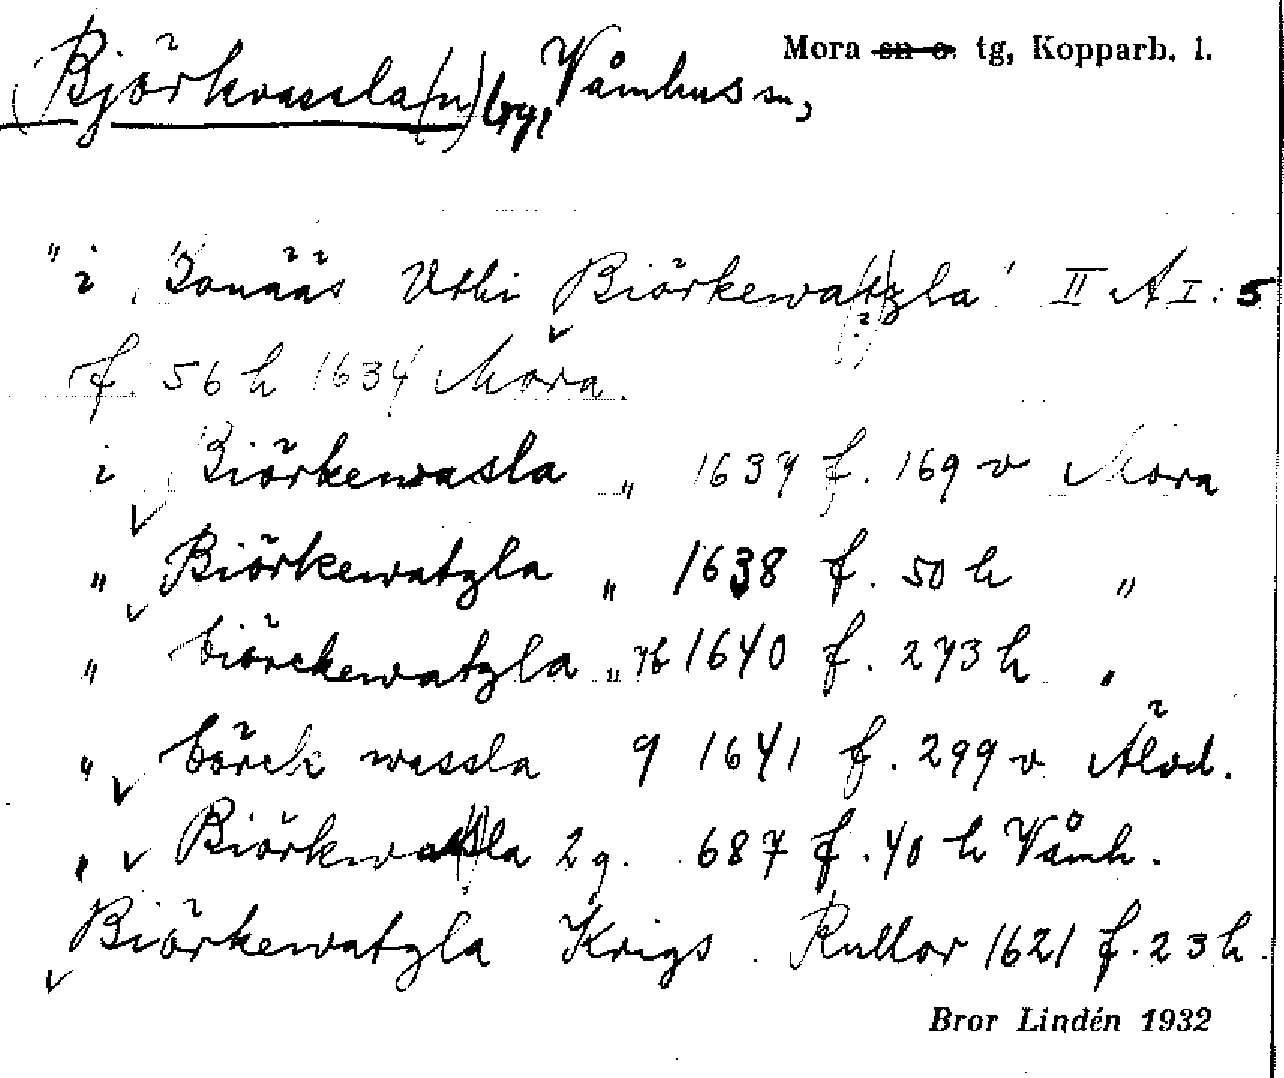 Mora sn o. tg, Kopparb. l.
(Björkvassla(n) by, Våmhus sn,
" i Bonääs Vthi Biörkewa(t)zla' II A I: 5
f. 56 h 1634 Mora.
i Biörkewasla " 1637 f. 169 v Mora
" Biörkewatzla " 1638 f. 50 h "
" biörckewatzla " 1640 f. 273 h "
" börck wassla 9 1641 f. 299 v Älvd.
" Biörkwassla 2 g. 687 f. 40 h Våmh.
Biörkewatzla Krigs Rullor 1621 f. 23 h.
Bror Lindén 1932